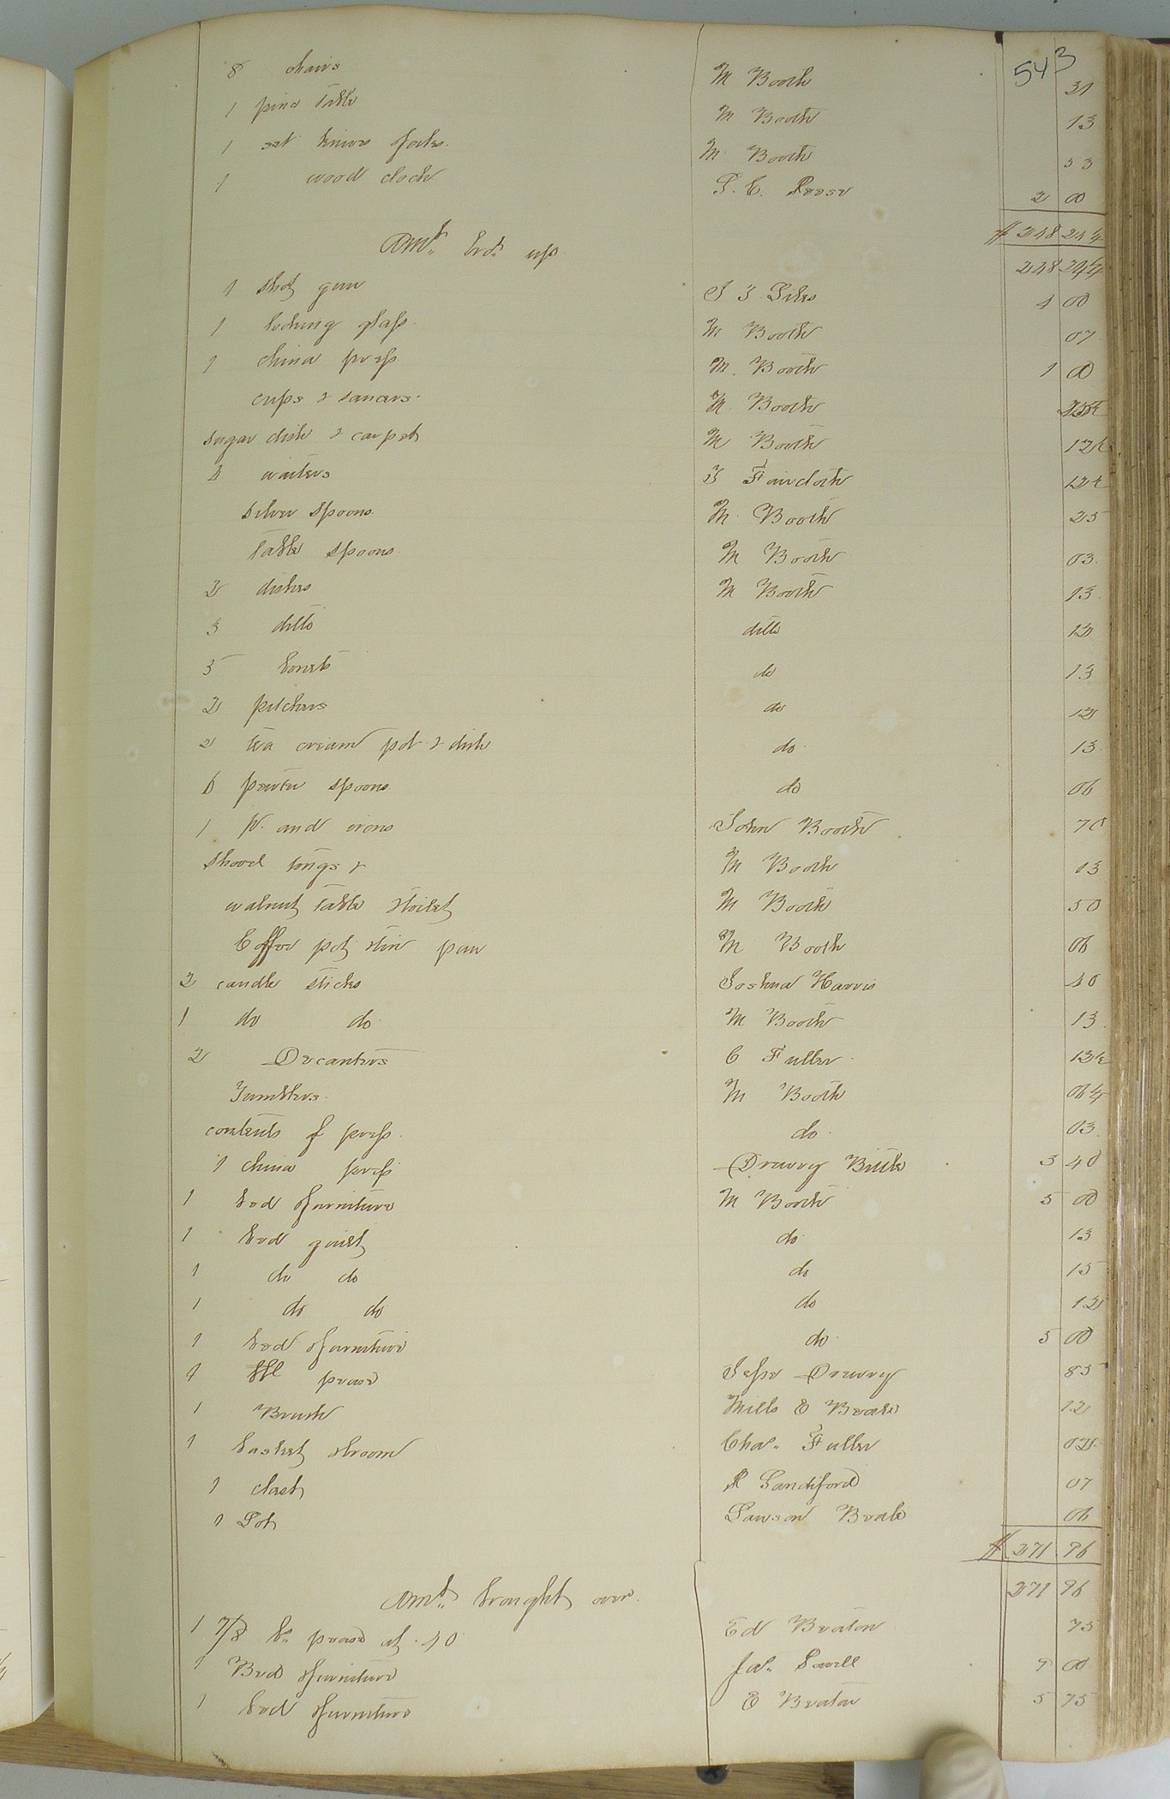 543
8 chairs M Booth 31
1 pine table M Booth 13
1 set knives forks. M Booth 53
1 wood clock 2 00
$ 248 24¼
Amt. brot. up 248 24¼
1 shot gun 4 00
1 looking glass M Booth 07
1 china press M. Booth 1 00
cups & saucers. M. Booth
sugar dish & carpet M Booth 12½
waiters Faircloth 12½
silver spoons M. Booth 25
table spoons M Booth 03.
2 dishes M Booth 13
3 ditto ditto 12
5 bowls do 13
2 pitchers do 12
2 tea cream pot & dish do. 13
6 pewter spoons do 06
1 pr. and irons John Booth 70
shovel tongs & M Booth 13
walnut table & toilet M Booth 50
Coffee pot & tin pan M Booth 06
2 candle sticks Joshua Harris 40
1 do do. M Booth 13
2 Decanters C Fuller 12½
Tumblers. M Booth 06¼
contents of press. do. 03.
1 china press Drewry 3 40
1 bed & furniture M Booth 5 00
1 bed quilt do. 13
1 do do do 15
1 do do do 12
1 bed & furniture do. 5 00
bbl peas Drewry 85
1 Brush Mills 12
1 basket & broom Chas. Fuller 02
1 R Sandiford 07
1 Pot 06
$ 271 96
Amt. brought over. 271 96
1 7/8 peas at 40 Ed 75
1 Bed & furniture Jas. 00
1 bed & furniture E 5 75